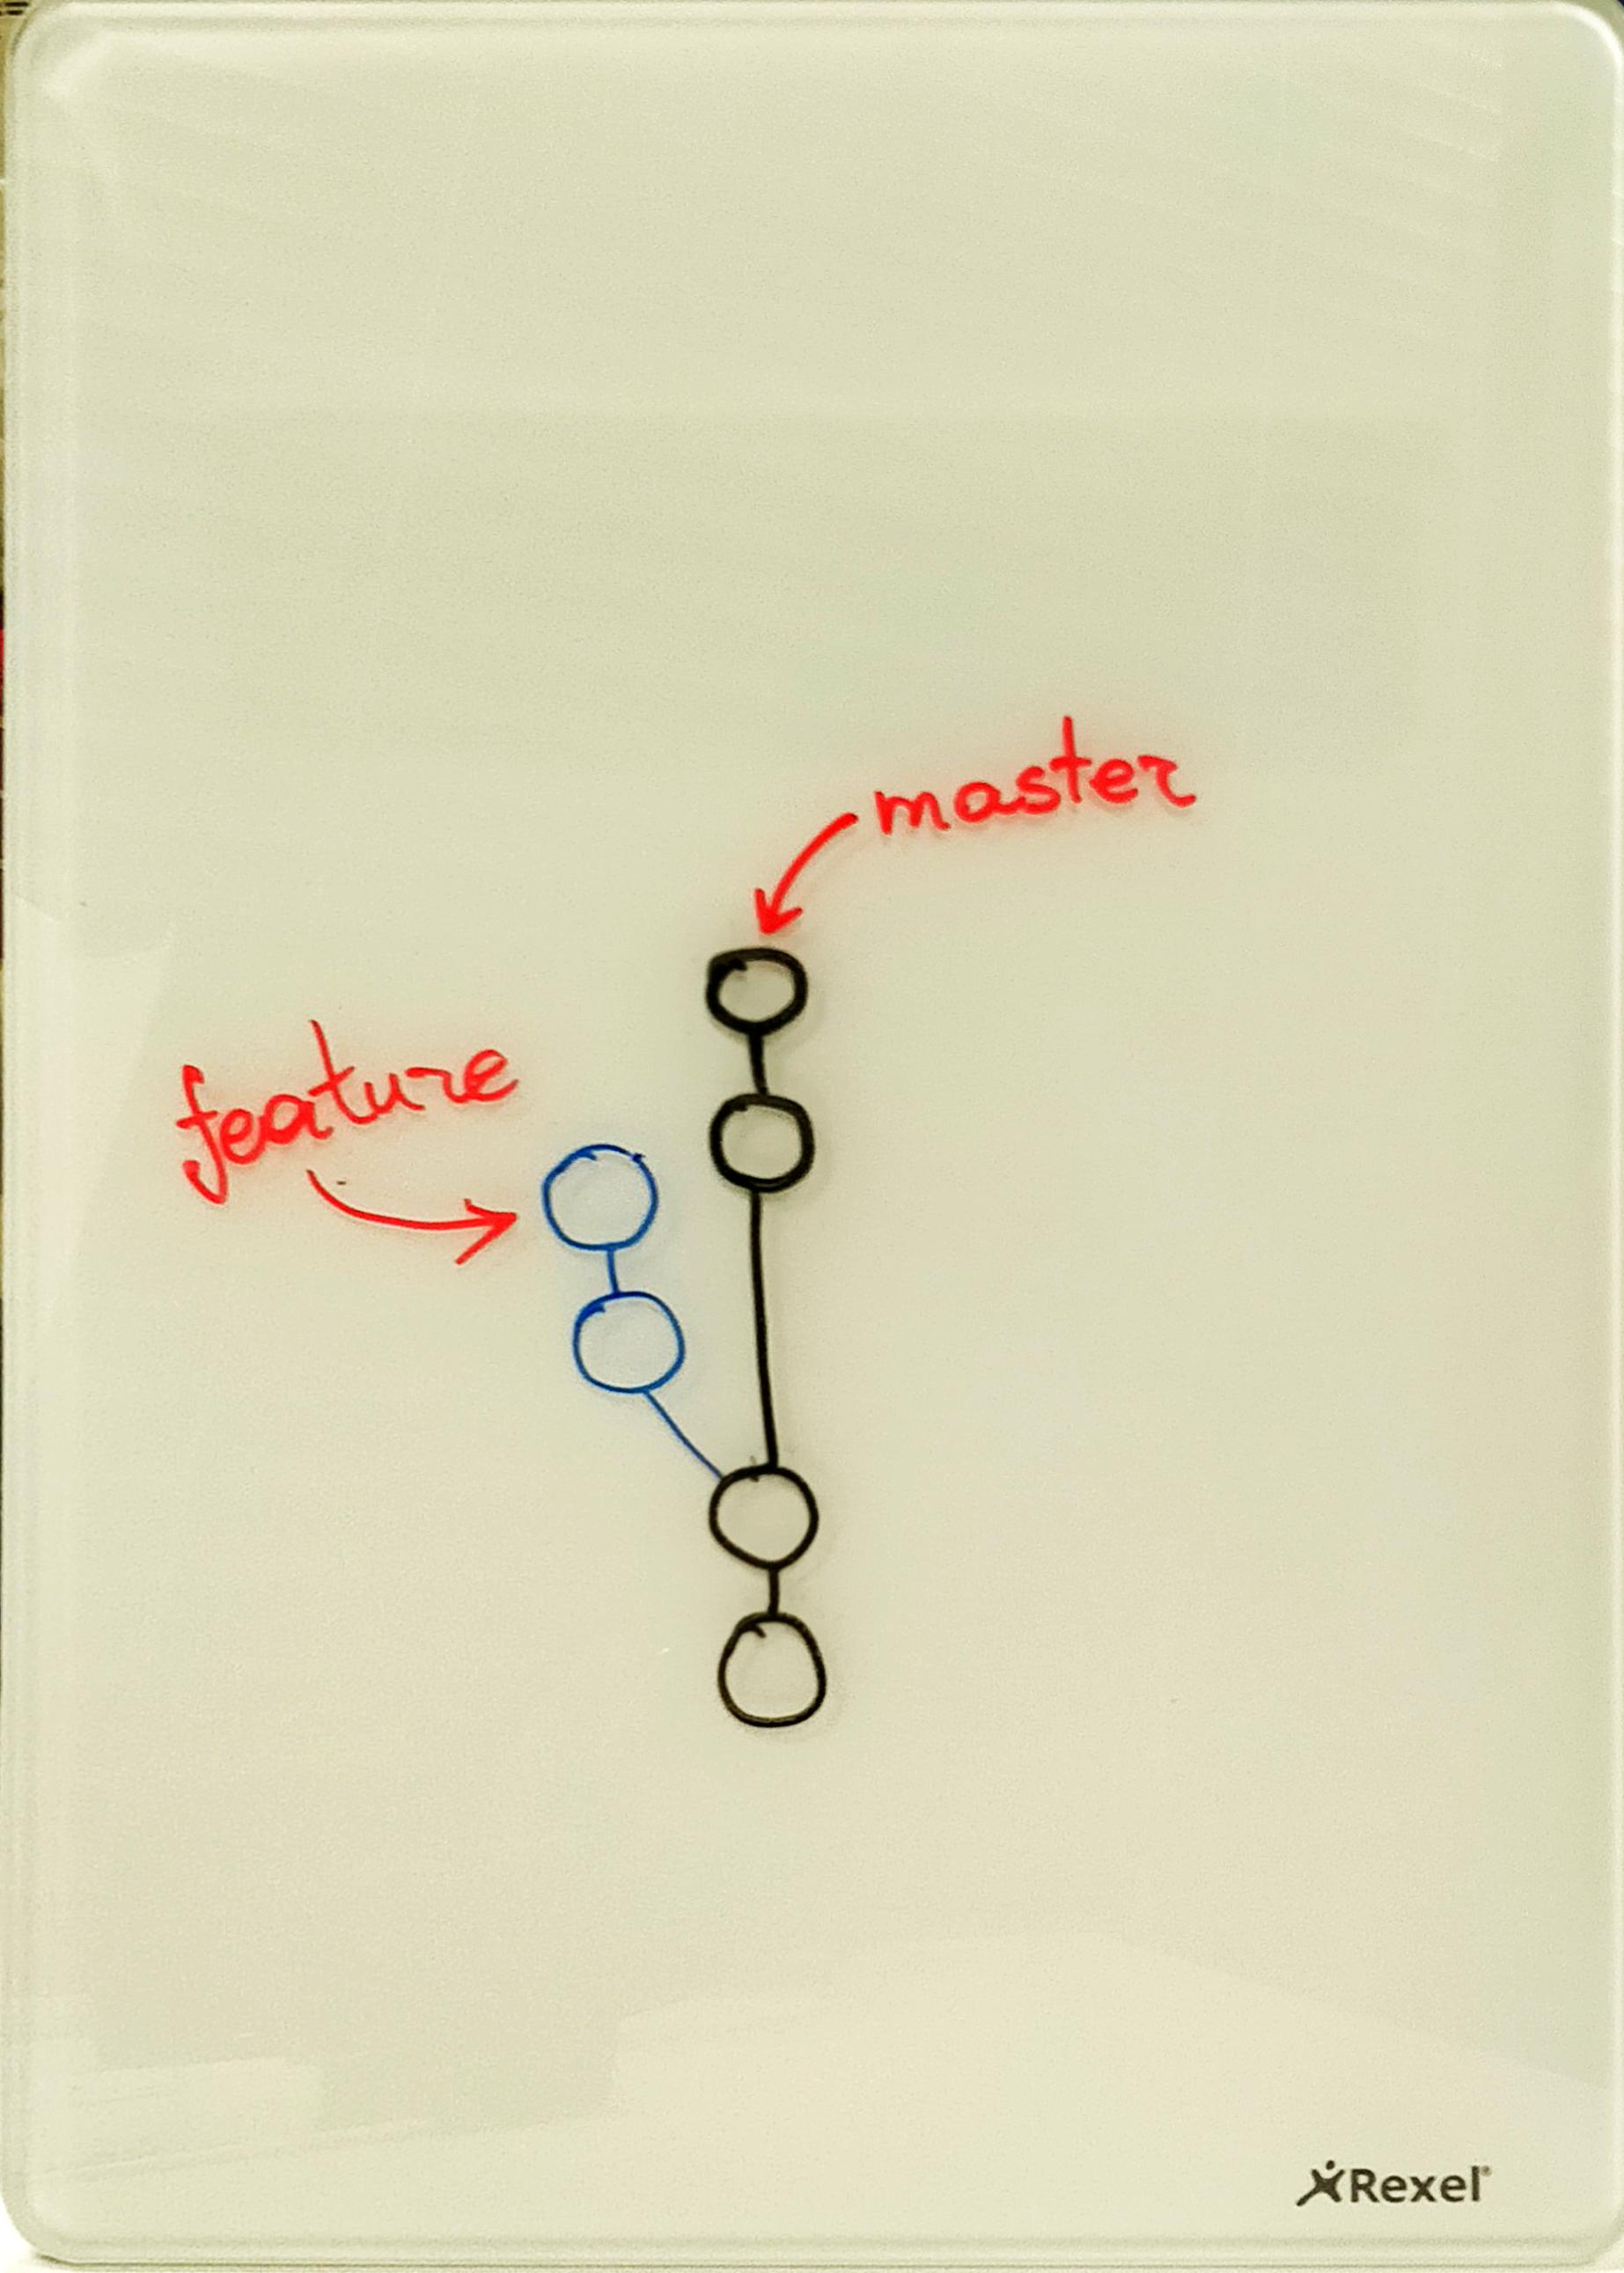 master
feature
Rexel